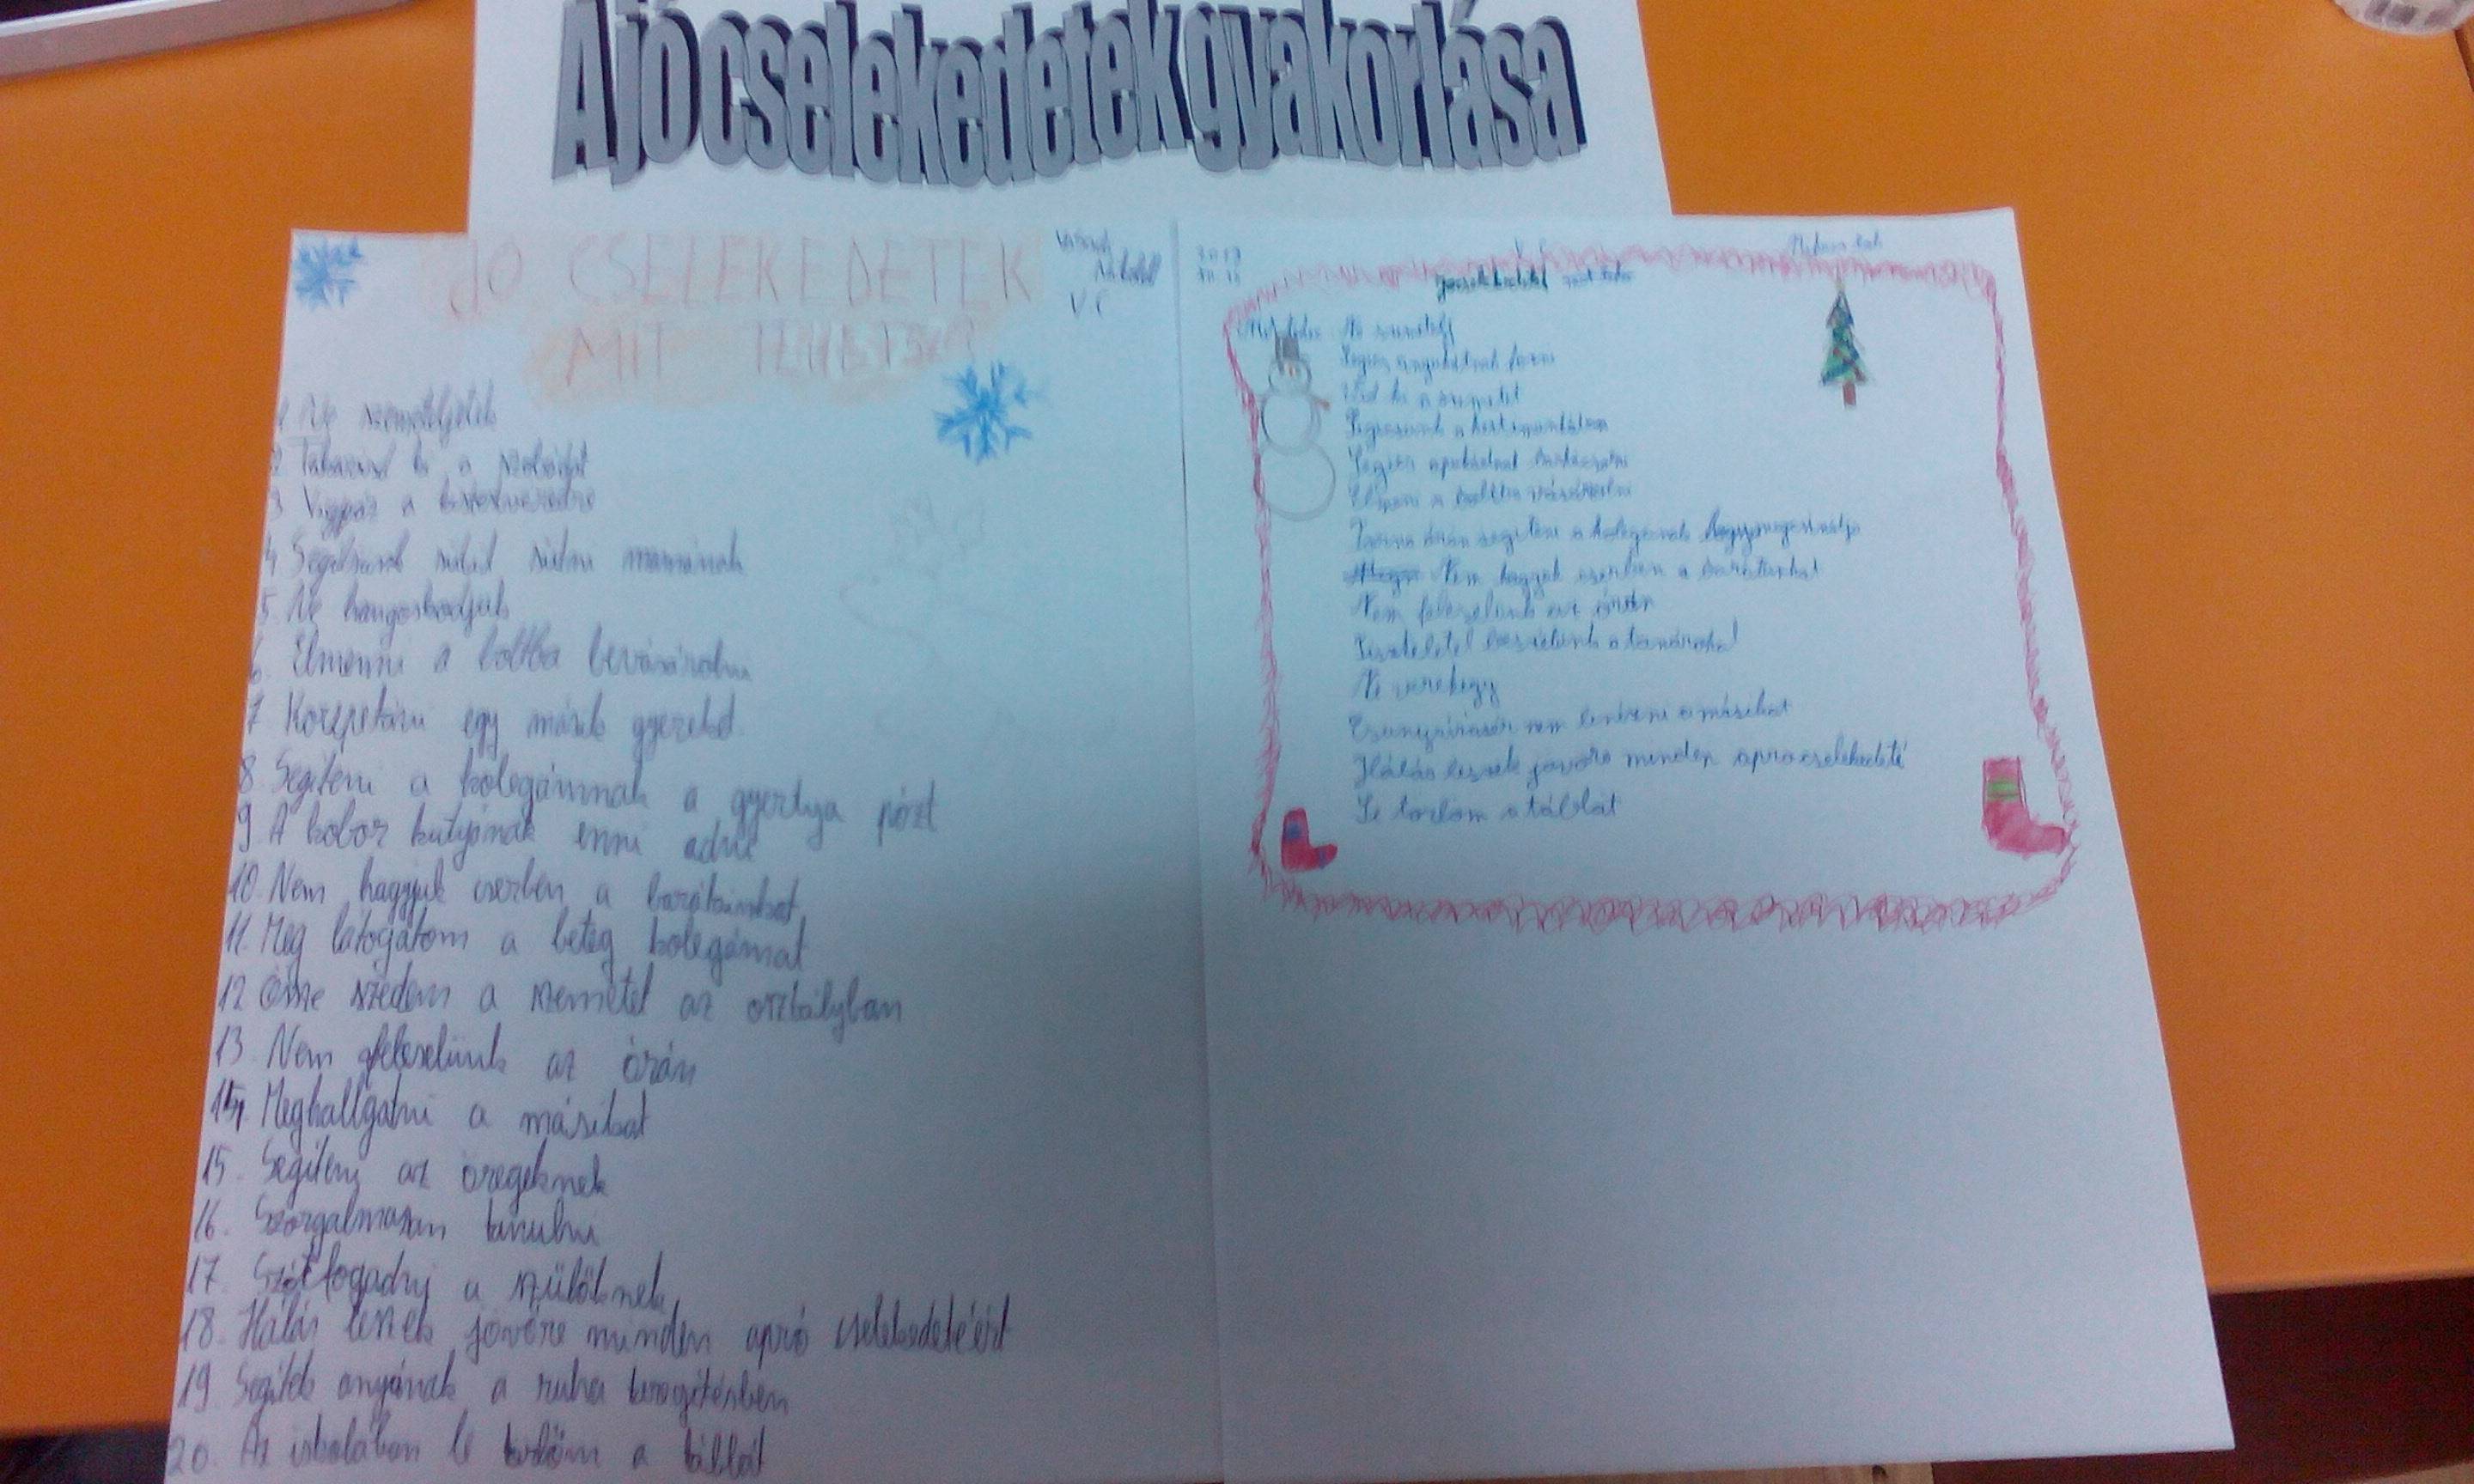 A jó cselekedetek gyakorlása
JÓ CSELEKEDETEK
V C
MIT
1 Ne szemeteljetek
2 Takarísd ki a szobádat
3 Vigyáz a kistestvéredre
4 Segítsünk sütit sütni mamának
5 Ne hangoskodjunk
6. Elmenni a boltba bevásárolni
7 Korepetálni egy másik gyereket
8 Segíteni a kolegámnak a gyertya pózt
9 A kobor kutyának enni adni
10. Nem hagyjuk cserben a barátainkat
11. Meg látogatom a beteg kolegámat
12 Össze szedem a szemetet az osztályban
13. Nem feleselünk az órán
14. Meghallgatni a másikat
15. Segíteni az öregeknek
16. Szorgalmasan tanulni
17. Szótfogadni a szülőknek
18. Hálás leszek jövőre minden apró cselekedetéért
19 Segítek anyának a ruha teregetésben
20. Az iskolában le törlöm a táblát
Ne szemetelj
Segíts anyukádnak főzni
Vidd ki a szemetet
Segítsünk a kertimunkában
Segíts apukádnak
a boltba vásárolni
Torna órán segíteni a kolegának hogy megcsinálja
Nem hagyjuk cserben a barátunkat
Nem feleselünk az órán
Tisztelettel beszélünk a tanárokal
Ne verekegy
nem lenézni a másikat
Hálás leszek jövőre minden apro cselekedeté
Le törlöm a táblát